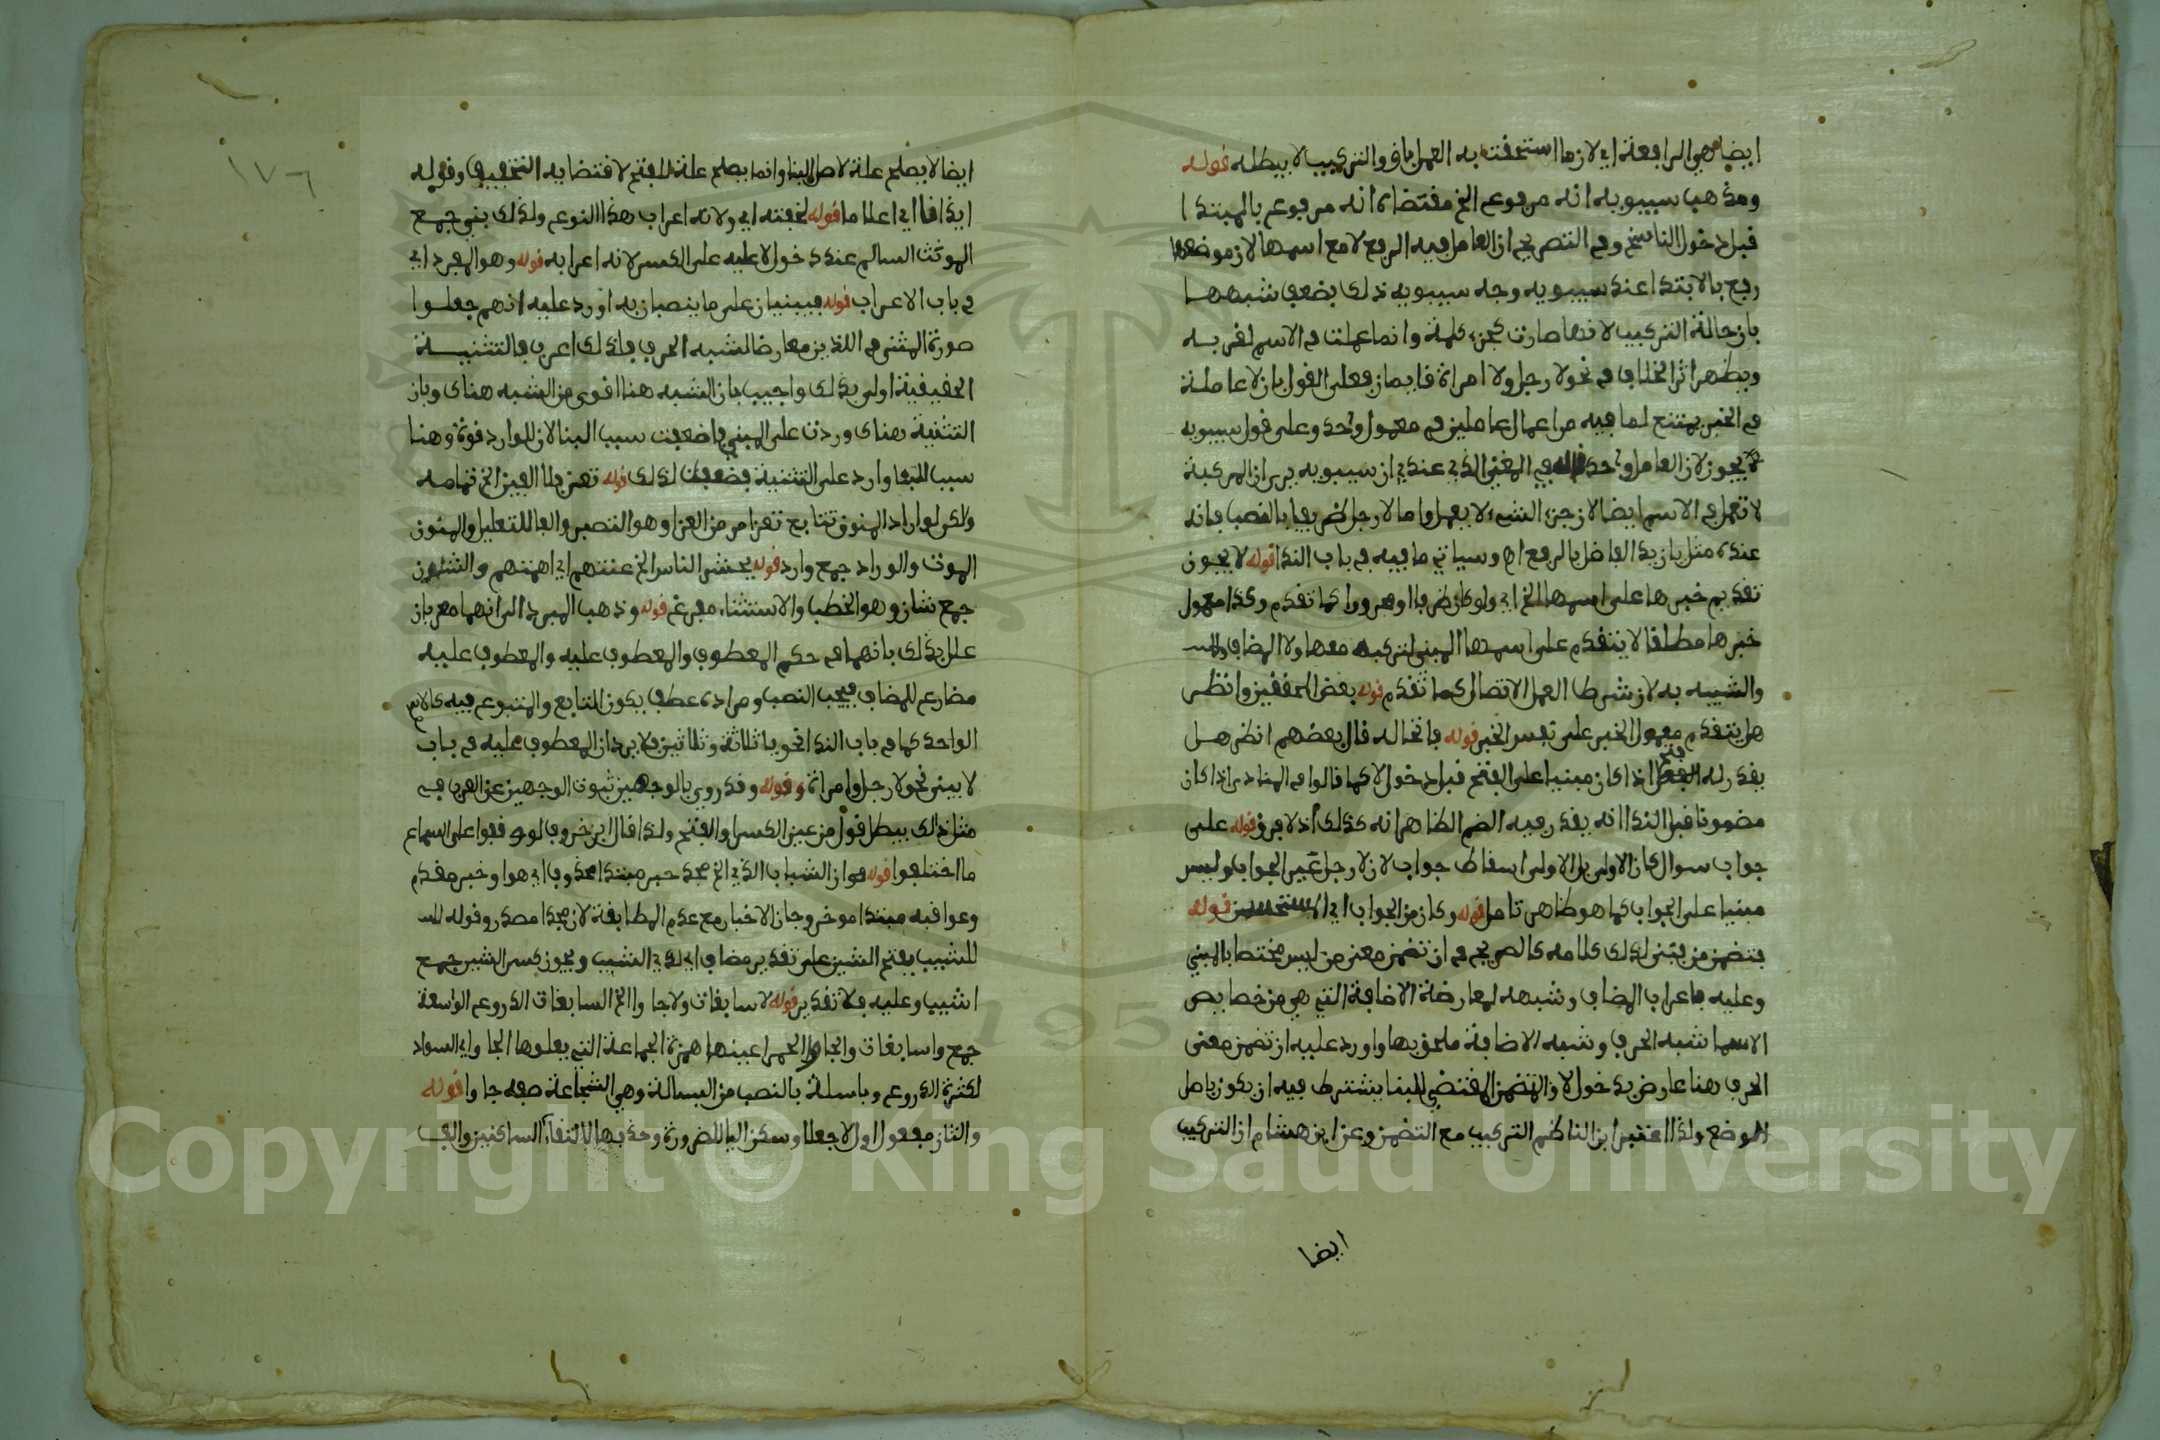 ايضا هي الرافعة اي لان ما استحقت به العمل باق والتركيب لا يبطله قوله
ومذهب سيبويه انه مرفوع الخ مقتضاه انه مرفوع بالمبتدا
قبل دخول الناسخ وفي التصريح ان العامل فيه الرفع لا مع اسمها لان موضعها
رفع بالابتدا عند سيبويه وجه سيبويه ذلك بضعف شبهها
بان حالة التركيب لانها صارت كجزء كلمة وانما عملت في الاسم لقربه
ويظهر اثر الخلاف في نحو لا رجل ولا امراة قايمان فعلى القول بان لا عاملة
في الخبر يمتنع لما فيه من اعمال عاملين في معمول واحد وعلى قول سيبويه
يجوز لان العامل واحد في المغني الذي عندي ان سيبويه يرى ان المركبة
لا تعمل في الاسم ايضا لان جزء الشيء لا يعمل واما لا رجل ظريفا بالنصب فانه
عنده مثل يا زيد الفاضل بالرفع اه وسياتي ما فيه في باب الندا قوله لا يجوز
تقديم خبرها على اسمها الخ اي ولو كان ظرفا او مجرورا كما تقدم وكذا معمول
خبرها مطلقا لا يتقدم على اسمها المبنى لتركبه معها ولا المضاف
والشبيه به لان شرط العمل الاتصال كما تقدم قوله بعض المحققين وانظر
هل يتقدم معمول الخبر على نفس الخبر قوله فاتحا له قال بعضهم انظر هل
يقدر له فتح اذا كان مبنيا على الفتح قبل دخول لا كما قالوا في المنادى اذا كان
مضموما قبل الندا انه يقدر فيه الضم الظاهر انه كذلك اذ لا فرق قوله على
جواب سوال كان الاولى بل الاولى اسقاط جواب لان لا رجل غير الجواب وليس
مبنيا على الجواب كما هو ظاهر تامل قوله وكان من الجواب اي قوله
فتضمن من فبني لذلك كلامه كالصريح في ان تضمن معنى من ليس مختصا بالمبني
وعليه فاعراب المضاف وشبهه لمعارضة الاضافة التي هي من خصايص
الاسما شبه الحرف وشبه الاضافة ملحق بها واورد عليه ان تضمن معنى
الحرف هنا عارض بدخول لا والتضمن المقتضي للبنا يشترط فيه ان يكون باصل
الوضع ولذا اعتبر ابن الناظم التركيب مع التضمن وعن ابن هشام ان التركيب
ايضا
١٧٦
ايضا لا يصلح علة لاصل البنا وانما يصلح علة للفتح لاقتضايه التخفيف وقوله
ايذافا اي اعلاما قوله لخفته اي ولانه اعراب هذا النوع ولذلك بني جمع
المونث السالم عند دخول لا عليه على الكسر لانه اعرابه قوله وهو المفرد اي
في باب الاعراب قوله فيبنيان على ما ينصبان به اورد عليه انهم جعلوا
صورة المثنى في اللذين معارضا لشبه الحرف فلذلك اعرب فالتثنية
الحقيقية اولى بذلك واجيب بان الشبه هنا اقوى من الشبه هناك وبان
التثنية هناك وردت على المبني فاضعفت سبب البنا لان للوارد قوة وهنا
سبب البنا وارد على التثنية فضعفت لذلك قوله تعز فلا الفين الخ تمامه
ولكن لوراد المنون تتابع تعز امر من العزا وهو التصبر والفا للتعليل والمنون
الموت والوراد جمع وارد قوله يحشر الناس الخ عنتهم اي اهمتهم والشئون
جمع شان وهو الخطب والاستثناء مفرغ قوله وذهب المبرد الى انهما معربان
علل بذلك بانهما في حكم المعطوف والمعطوف عليه والمعطوف عليه
مضارع للمضاف فيجب النصب ومراده عطف يكون التابع والمتبوع فيه كالاسم
الواحد كما في باب الندا نحو يا ثلاثة وثلاثين فلا يرد ان المعطوف عليه في باب
لا يبنى نحو لا رجل وامراة وقوله وقد روي بالوجهين ثبوت الوجهين عن العرب في
مثل ذلك يبطل قول من عين الكسر او الفتح ولذا قال ابن خروف لو وقفوا على السماع
ما اختلفوا قوله ان الشباب الذي الخ مجد خبر مبتدا محذوف اي هو او خبر مقدم
وعواقبه مبتدا موخر وجاز الاخبار مع عدم المطابقة لان مجدا مصدر وقوله
للشيب بفتح الشين على تقدير مضاف اي لذي الشيب ويجوز كسر الشين جمع
اشيب وعليه فلا تقدير قوله لا سابغات ولا جاوا الخ السابغات الدروع الواسعة
جمع واسابغات والجاوا الحمرا عينها همزة الجماعة التي يعلوها الجاو اي السواد
لكثرة الدروع وباسلة بالنصب من البسالة وهي الشجاعة صفة جاوا قوله
والثان مفعول اول لاجعلا وسكن اليا للضرورة وحذفها لالتقاء الساكنين والف
Copyright © King Saud University
195